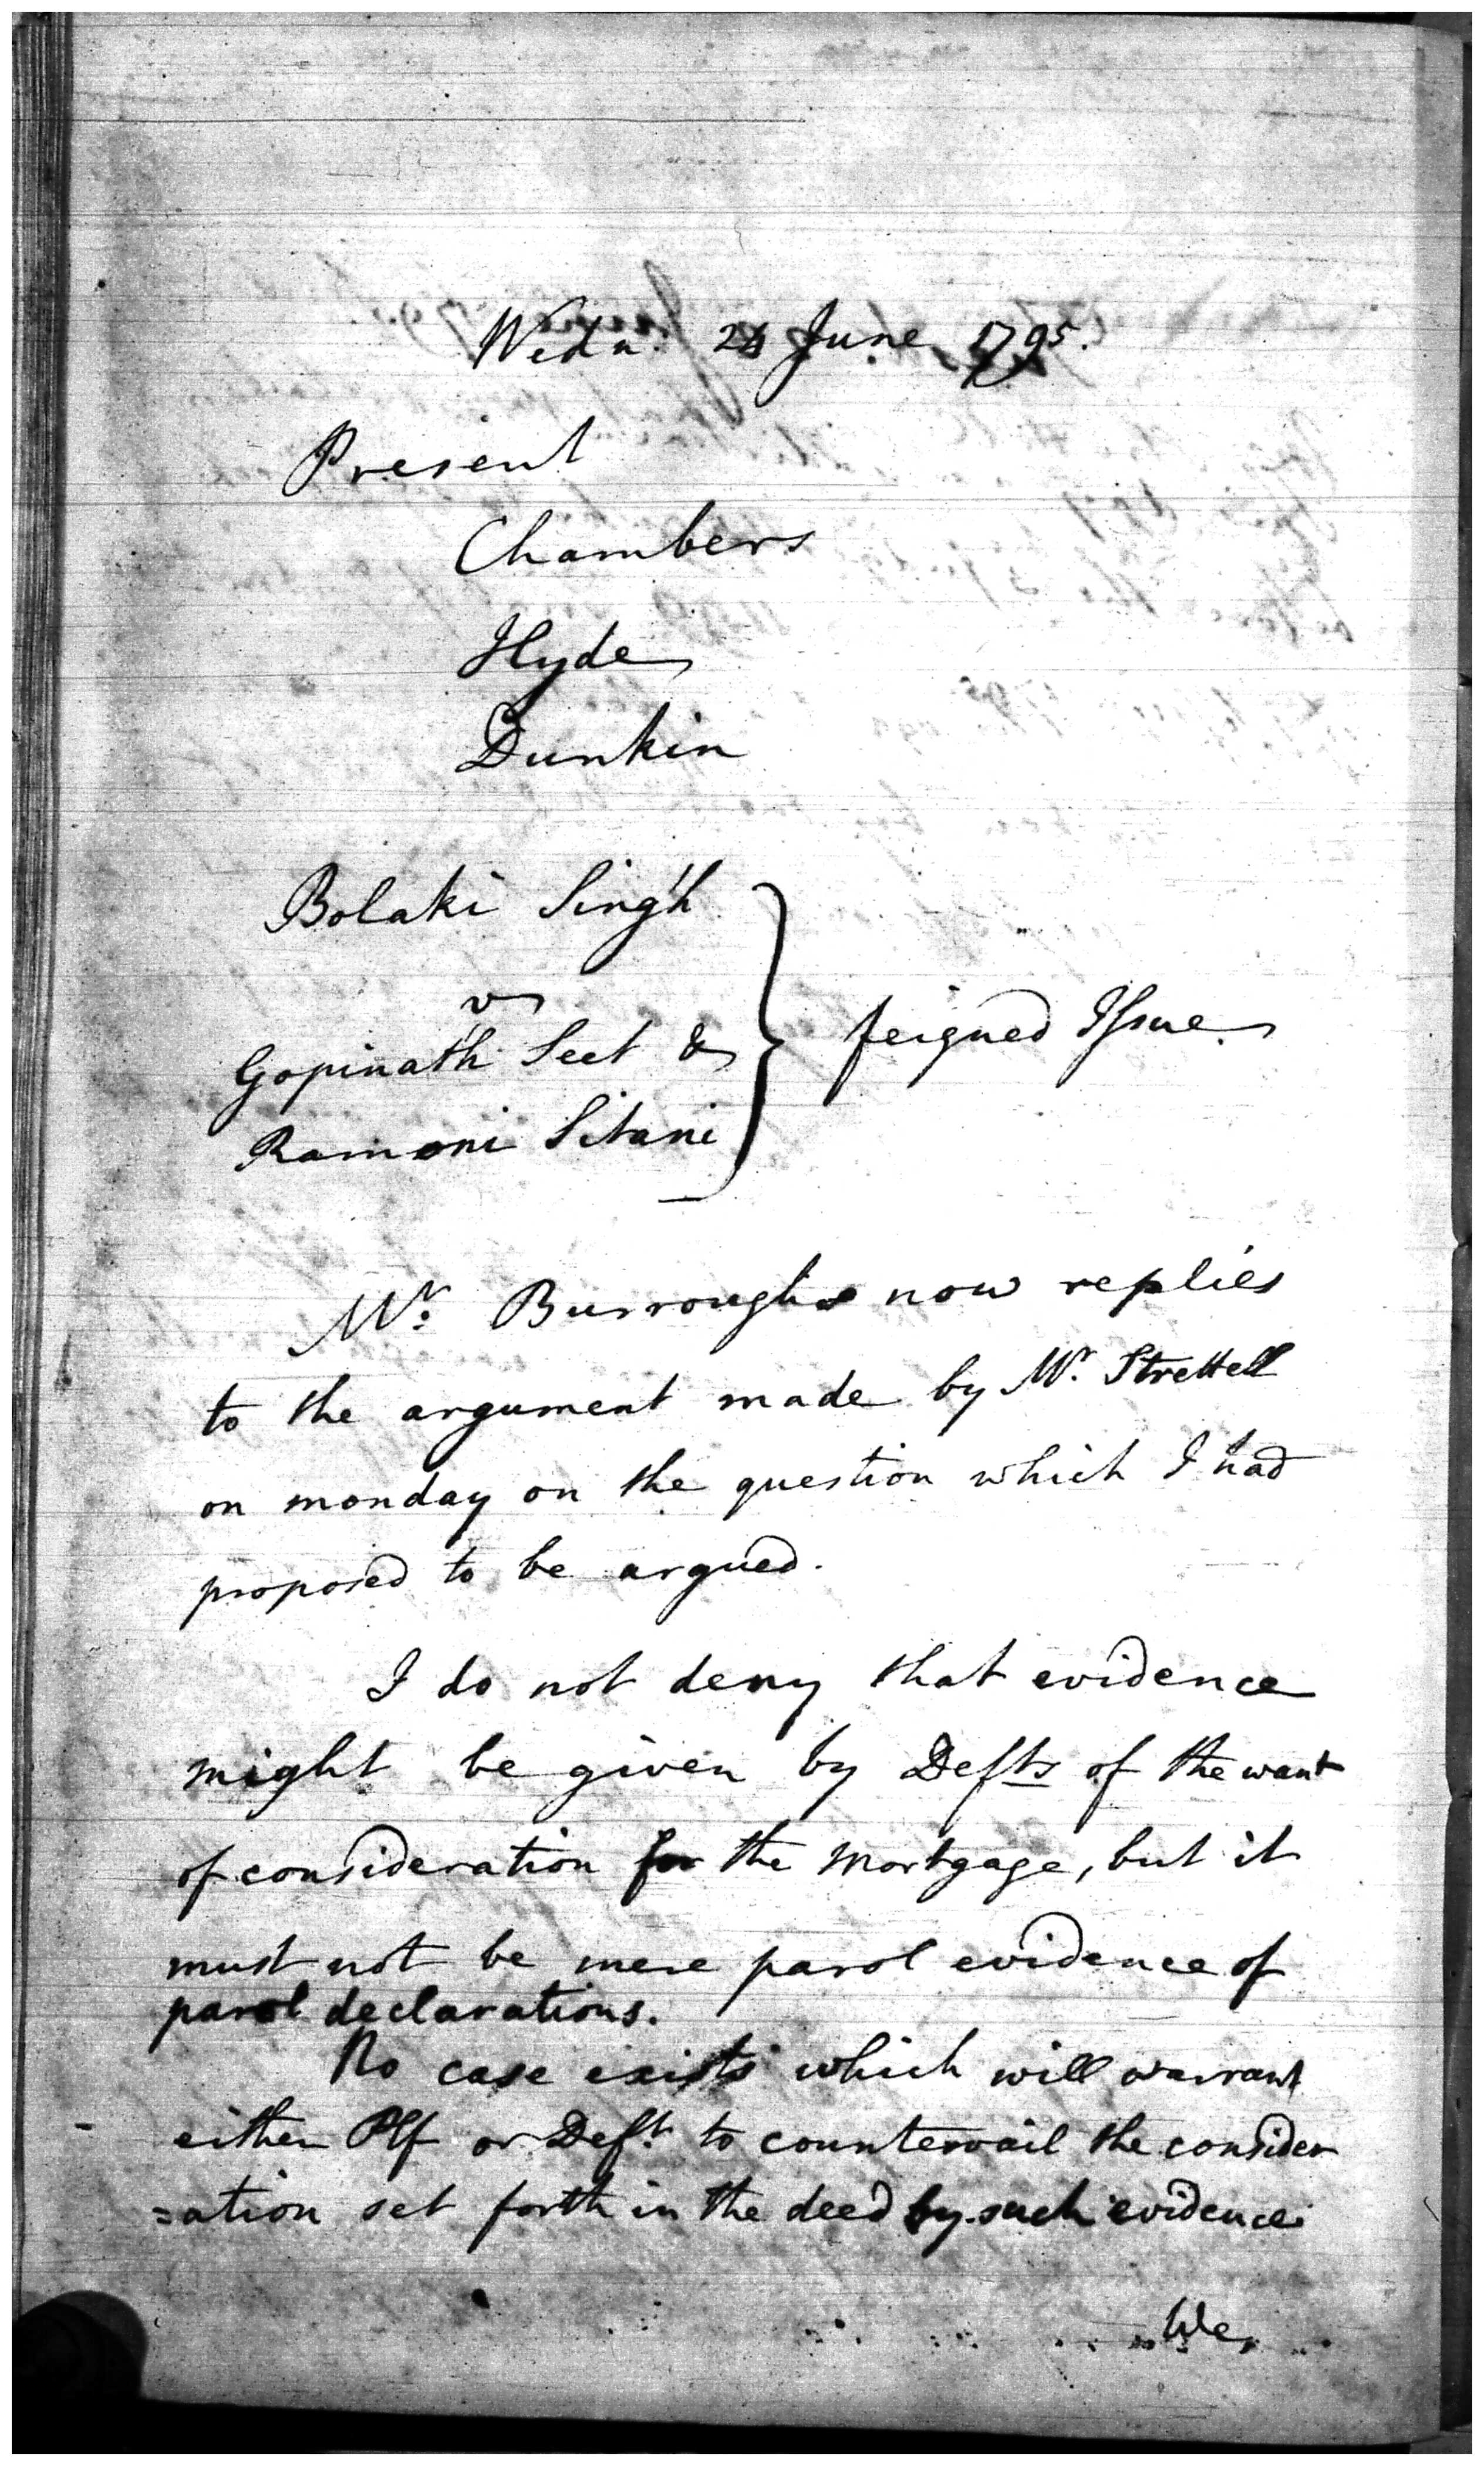 Wedn. 24 June 1795.
Present
Chambers
Hyde
Dunkin
Bolaki Singh
vs
Gopinath Seet &
Ramoni Sitani
feigned Issue
Mr. Burroughs now replies
to the argument made by Mr. Strettell
on monday on the question which I had
proposed to be argued.
I do not deny that evidence
might be given by Defts of the want
of consideration for the mortgage, but it
must not be mere parol evidence of
parol declarations.
No case exists which will warrant
either Plf or Deft. to countervail the consider
=ation set forth in the deed by such evidence.
We